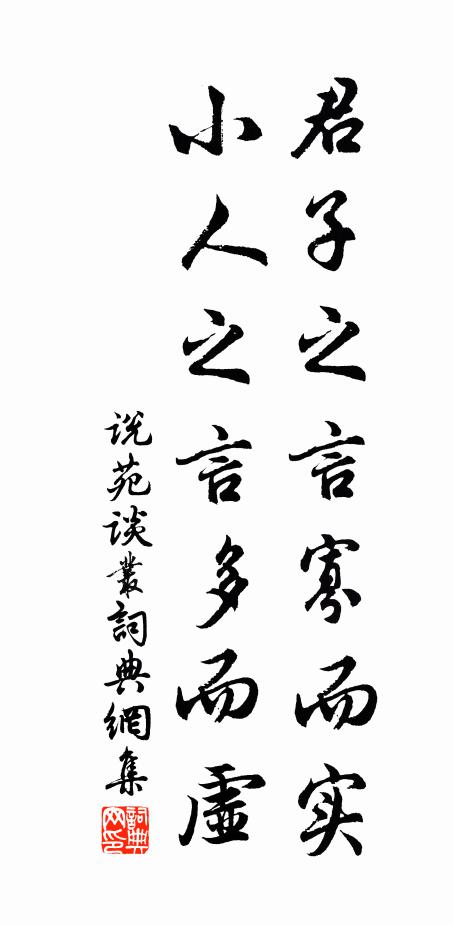 君子之言寡而实
小人之言多而虚
说苑谈叢詞典網集
詞典网印